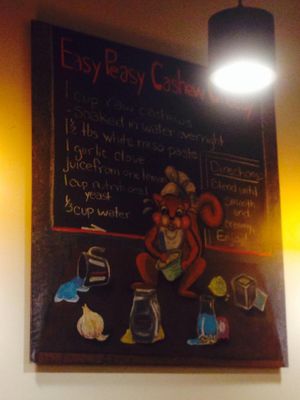 Easy Peasy Cashew
1 cup raw cashews
-soaked in water overnight
1½ tbs white miso paste
1 garlic clove
juice from one lemon
1 cup nutritional
yeast
⅓ cup water
Directions:
Blend until
smooth
and
creamy
Enjoy!